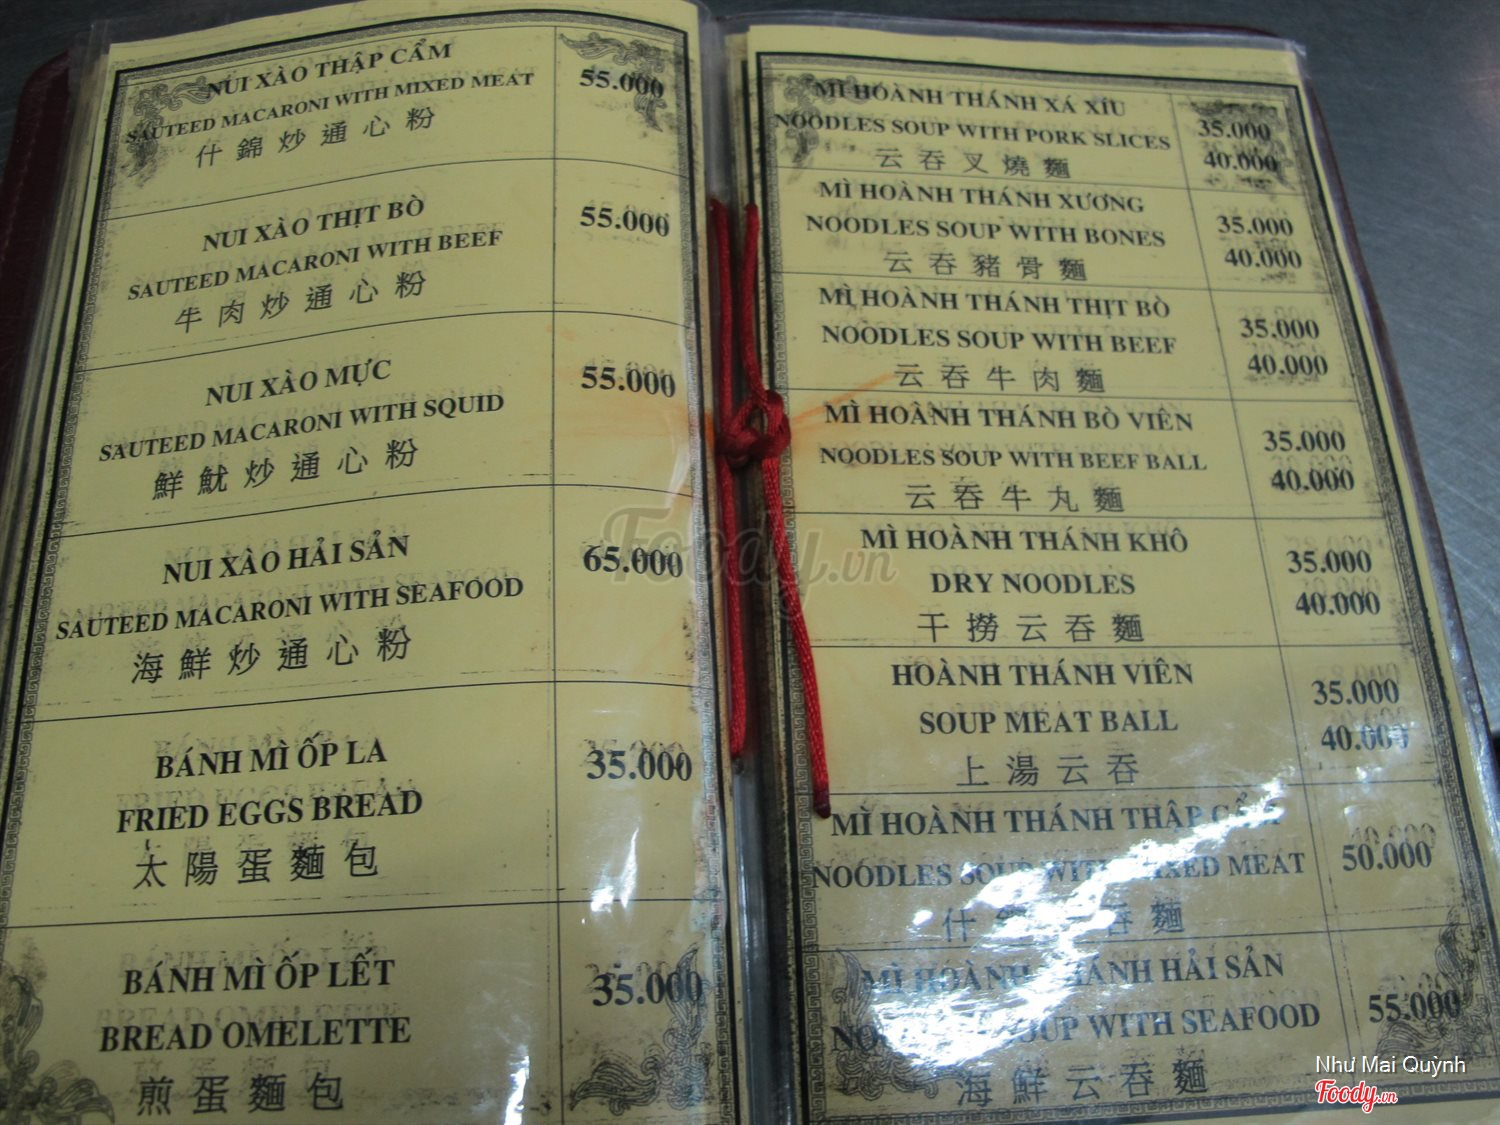 NUI XÀO THẬP CẨM
55.000
SAUTEED MACARONI WITH MIXED MEAT
什錦炒通心粉
NUI XÀO THỊT BÒ
55.000
SAUTEED MACARONI WITH BEEF
牛肉炒通心粉
NUI XÀO MỰC
55.000
SAUTEED MACARONI WITH SQUID
鮮魷炒通心粉
NUI XÀO HẢI SẢN
65.000
SAUTEED MACARONI WITH SEAFOOD
海鮮炒通心粉
BÁNH MÌ ỐP LA
35.000
FRIED EGGS BREAD
太陽蛋麵包
BÁNH MÌ ỐP LẾT
35.000
BREAD OMELETTE
煎蛋麵包
MÌ HOÀNH THÁNH XÁ XÍU
35.000
NOODLES SOUP WITH PORK SLICES
40.000
云吞叉燒麵
MÌ HOÀNH THÁNH XƯƠNG
35.000
NOODLES SOUP WITH BONES
40.000
云吞豬骨麵
MÌ HOÀNH THÁNH THỊT BÒ
35.000
NOODLES SOUP WITH BEEF
40.000
云吞牛肉麵
MÌ HOÀNH THÁNH BÒ VIÊN
35.000
NOODLES SOUP WITH BEEF BALL
40.000
云吞牛丸麵
MÌ HOÀNH THÁNH KHÔ
35.000
DRY NOODLES
40.000
干撈云吞麵
HOÀNH THÁNH VIÊN
35.000
SOUP MEAT BALL
40.000
上湯云吞
MÌ HOÀNH THÁNH THẬP CẨM
50.000
NOODLES SOUP WITH MIXED MEAT
什錦云吞麵
MÌ HOÀNH THÁNH HẢI SẢN
55.000
NOODLES SOUP WITH SEAFOOD
海鮮云吞麵
Foody.vn
Như Mai Quỳnh
Foody.vn